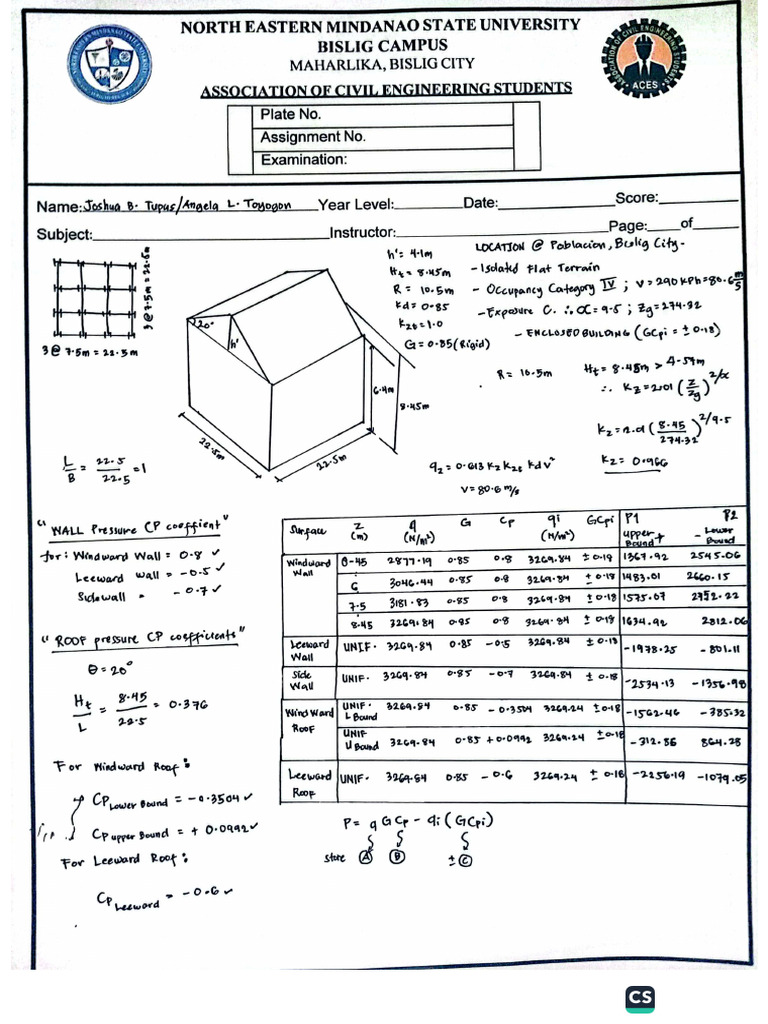 NORTH EASTERN MINDANAO STATE UNIVERSITY
BISLIG CAMPUS
MAHARLIKA, BISLIG CITY
ASSOCIATION OF CIVIL ENGINEERING STUDENTS
ACES
Plate No.
Assignment No.
Examination:
Name: Joshua B. Tupas/Angela L. Toyogon Year Level: Date: Score:
Subject: Instructor: Page: of
3 @ 7.5m = 22.5m
3 @ 7.5m = 22.5m
20°
h'
6.4m
8.45m
22.5m
22.5m
h' = 4.1m
Ht = 8.45m
R = 10.5m
Kd = 0.85
Kzt = 1.0
G = 0.85 (Rigid)
LOCATION @ Poblacion, Bislig City-
- Isolated Flat Terrain
- Occupancy Category IV ; V = 290 kph = 80.6 m/s
- Exposure C. ∴ α = 9.5 ; Zg = 274.32
- ENCLOSED BUILDING (GCpi = ± 0.18)
R = 10.5m
Ht = 8.45m > 4.57m
∴ Kz = 2.01 (z/zg)^2/α
Kz = 2.01 (8.45/274.32)^2/9.5
Kz = 0.966
qz = 0.613 Kz Kzt Kd V²
V = 80.6 m/s
L/B = 22.5/22.5 = 1
"WALL Pressure CP coeffient"
for: Windward Wall = 0.8 ✓
Leeward wall = -0.5 ✓
Sidewall = -0.7 ✓
"ROOF pressure CP coefficients"
θ = 20°
Ht/L = 8.45/22.5 = 0.376
For Windward Roof:
Cp Lower Bound = -0.3504 ✓
Cp upper Bound = + 0.0992 ✓
For Leeward Roof:
Cp Leeward = -0.6 ✓
Surface z (m) q (N/m²) G Cp qi (N/m²) GCpi P1 upper Bound + P2 - Lower Bound
Windward Wall 0-45 2877.19 0.85 0.8 3269.84 ± 0.18 1367.92 2545.06
6 3046.44 0.85 0.8 3269.84 ± 0.18 1483.01 2660.15
7.5 3181.83 0.85 0.8 3269.84 ± 0.18 1575.07 2752.22
8.45 3269.84 0.85 0.8 3269.84 ± 0.18 1634.92 2812.06
Leeward Wall UNIF. 3269.84 0.85 -0.5 3269.84 ± 0.18 -1978.25 -801.11
Side Wall UNIF. 3269.84 0.85 -0.7 3269.84 ± 0.18 -2534.13 -1356.98
Windward Roof UNIF. L Bound 3269.84 0.85 -0.3504 3269.24 ±0.18 -1562.46 -385.32
UNIF U Bound 3269.84 0.85 +0.0992 3269.24 ±0.18 -312.86 864.28
Leeward Roof UNIF. 3269.84 0.85 -0.6 3269.24 ± 0.18 -2256.19 -1079.05
P = q G Cp - qi (GCpi)
store A B ± C
CS